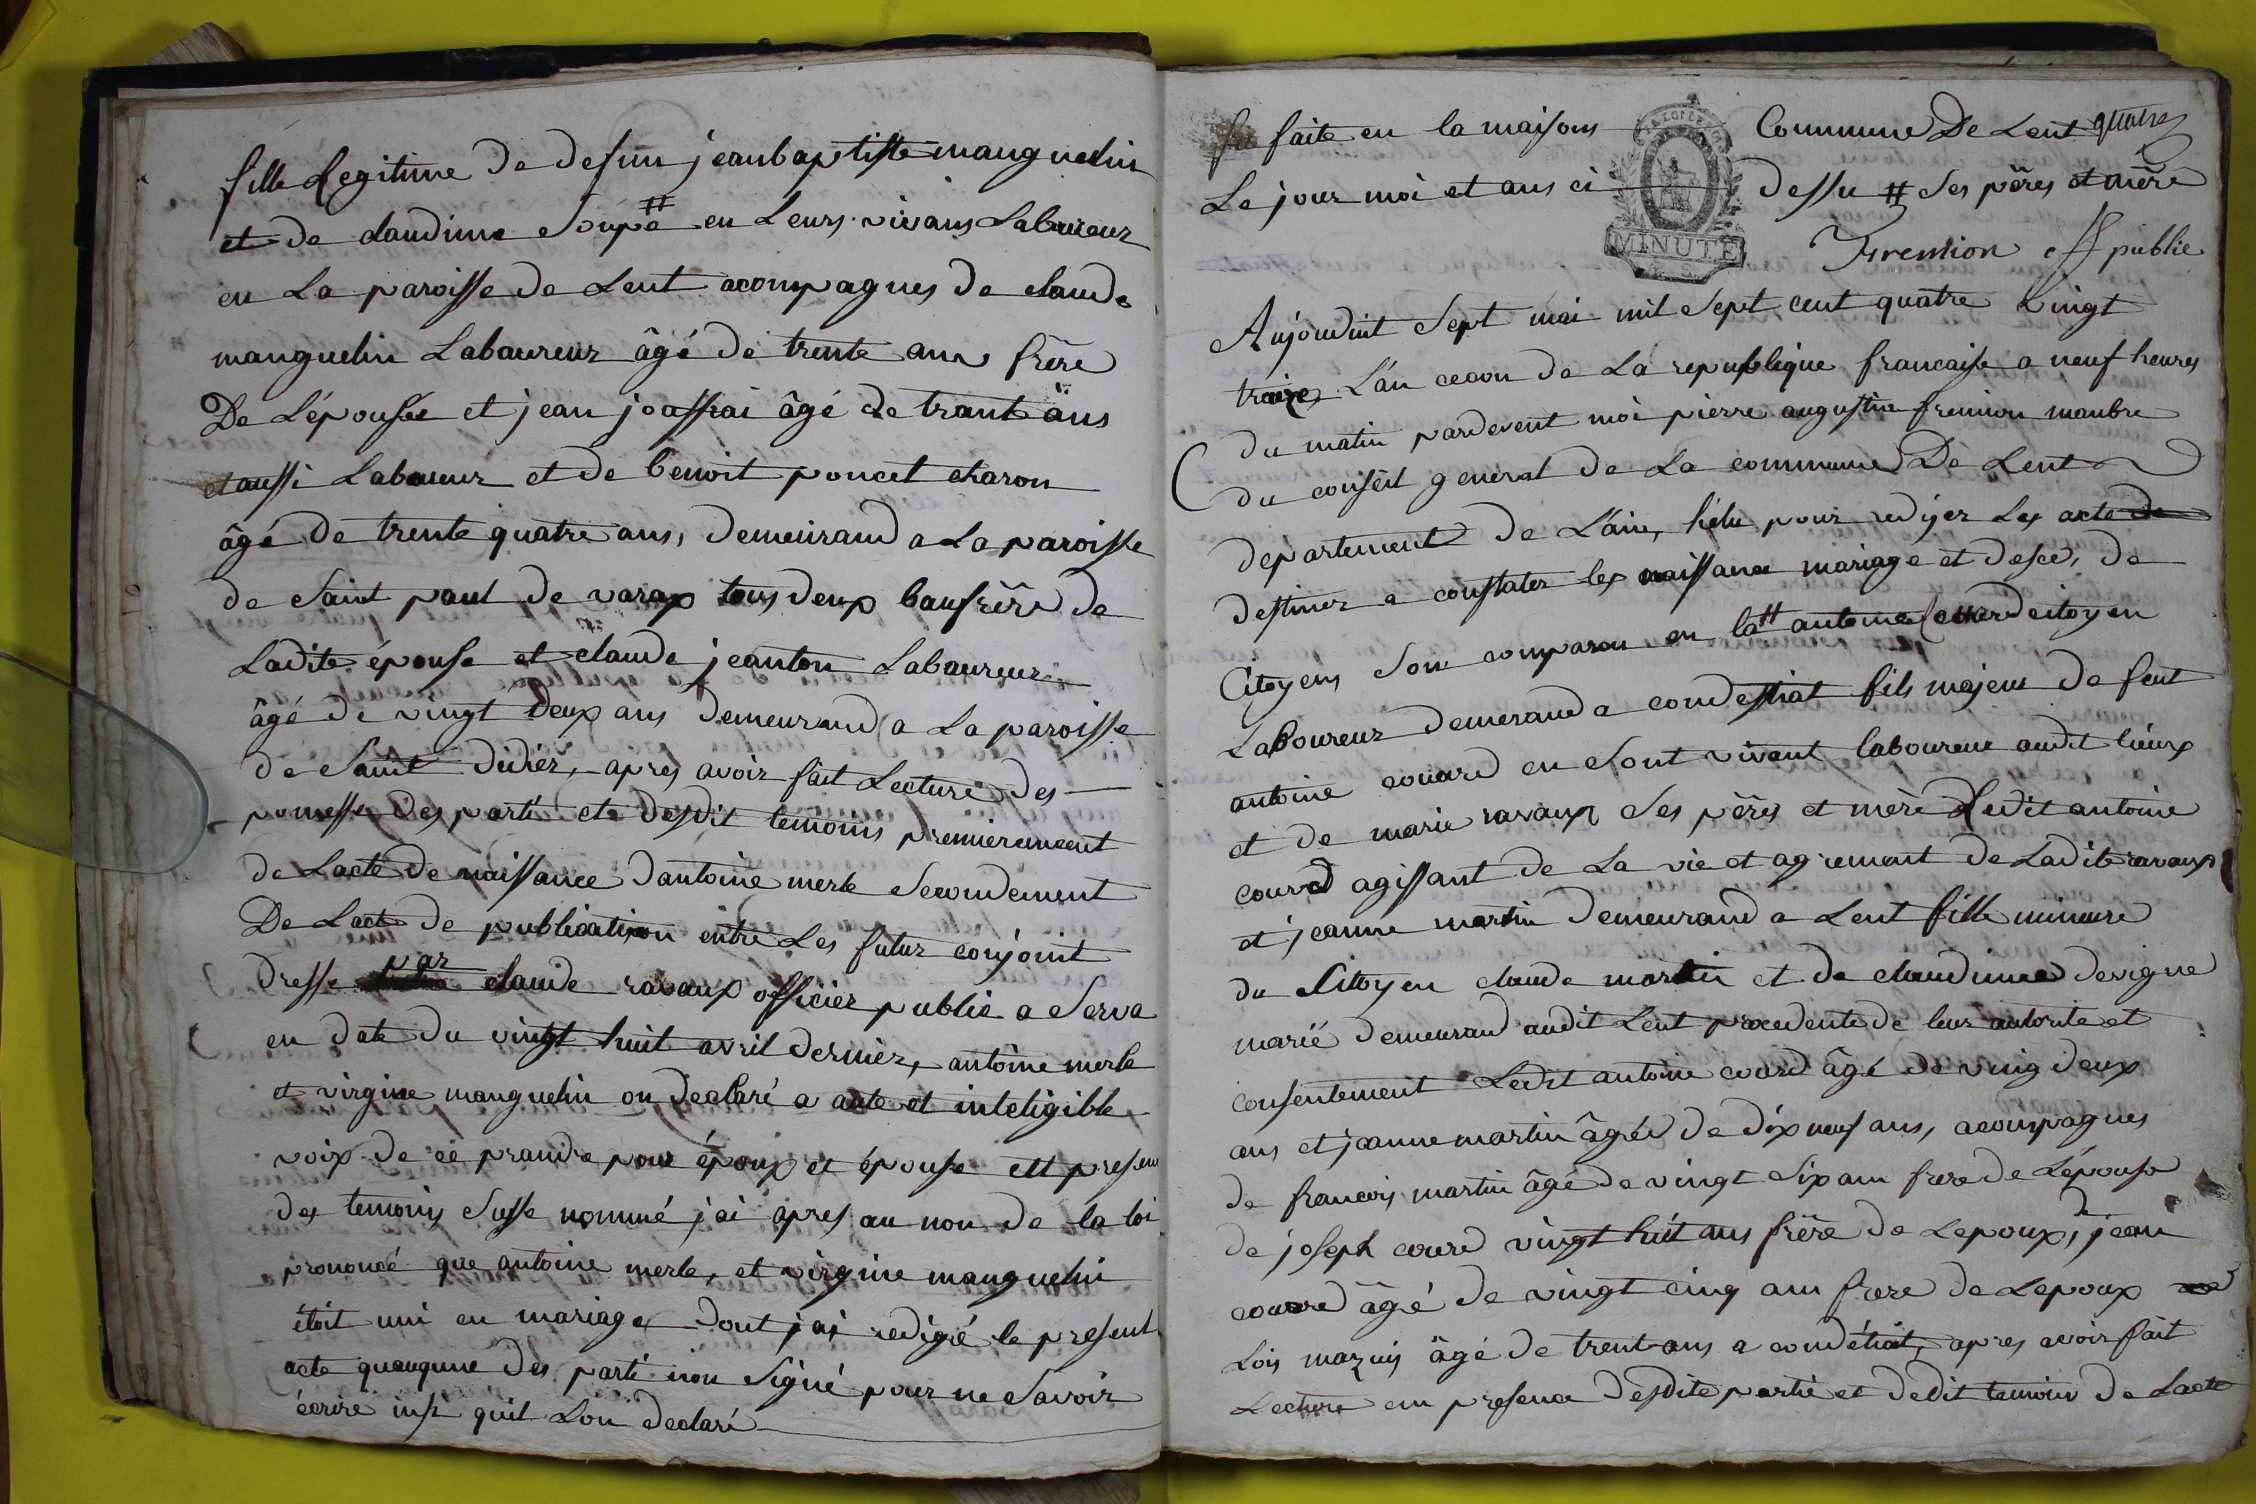 fille Legitime de defun jeanbaptiste manguelin
et de claudine Soupé # en Leurs vivans Laboureur
en La paroisse de Lent acompagnes de claude
manguelin Laboureur âgé de trente ans frère
De L'épousée et jean joassrai âgé de trant ans
et aussi Laboureur et de benoit poncet charon
âgé de trente quatre ans, demeurand a La paroisse
de Saint paul de varax tous deux baufrère de
Ladite épouse et claude jeanton Laboureur
âgé de vingt deux ans demeurand a La paroisse
de Saint didiér, apres avoir fait Lecture des
pomesse des parti et desdit temoins premierement
de Lacte de naissance dantoine merle Secondement
De Lacte de publication entre Les futur conjoint
dresse par claude ravaux officier public a Serva
en date du vingt huit avril dernier, antoine merle
et virgine manguelin on declaré a aute et inteligible
voix de ce prandre pour époux et épouse ett presen
des temoins Susse nommé j'ai apres au non de la loi
prononcé que antoine merle, et virgine manguelin
étoit uni en mariage dont j'ai redigré le present
acte quaugune des parti non Signé pour ne Savoir
écrire insi quil Lon declaré
fu faite en la maisons Commune De Lent quatre
Le jour moi et ans ci dessu # Ses pères et mère
MINUTE
fremion off public
Aujourduit Sept mai mil Sept cent quatre vingt
traize L'an cecon de La republique francaise a neuf heures
du matin pardevent moi pierre augustin fremion manbre
du conseil general de La commune De Lent
departement de L'ain, hélu pour redijer Les acte de
destiner a constater les naissance mariage et desce, de
Citoyens Son comparon en la # antoine couard citoyen
Laboureur demerand a condestiat fils majeur de feut
antoine couard en Sont vivant laboureur audit lieux
et de marie ravaux Ses pères et mère Ledit antoine
courd agissant de La vie et agrement de Ladite ravaux
et jeanne martin demeurand a Lent fille mineure
du Citoyen claude martin et de claudinne devigne
marié demeurand audit Lent procedente de leur autorite et
consentement Ledit antoine couard âgé de ving deux
ans et jeanne martin âgée de dix neuf ans, acompagnes
de francois martin âgé de vingt Six ans frere de Lépouse
de joseph courd vingt huit ans frère de Lepoux, de jean
couard âgé de vingt cinq ans frere de Lepoux
Lois mazuis âgé de trent ans a condétiat, apres avoir fait
Lecture en presence desdite partie et dedit temoin de Lacte